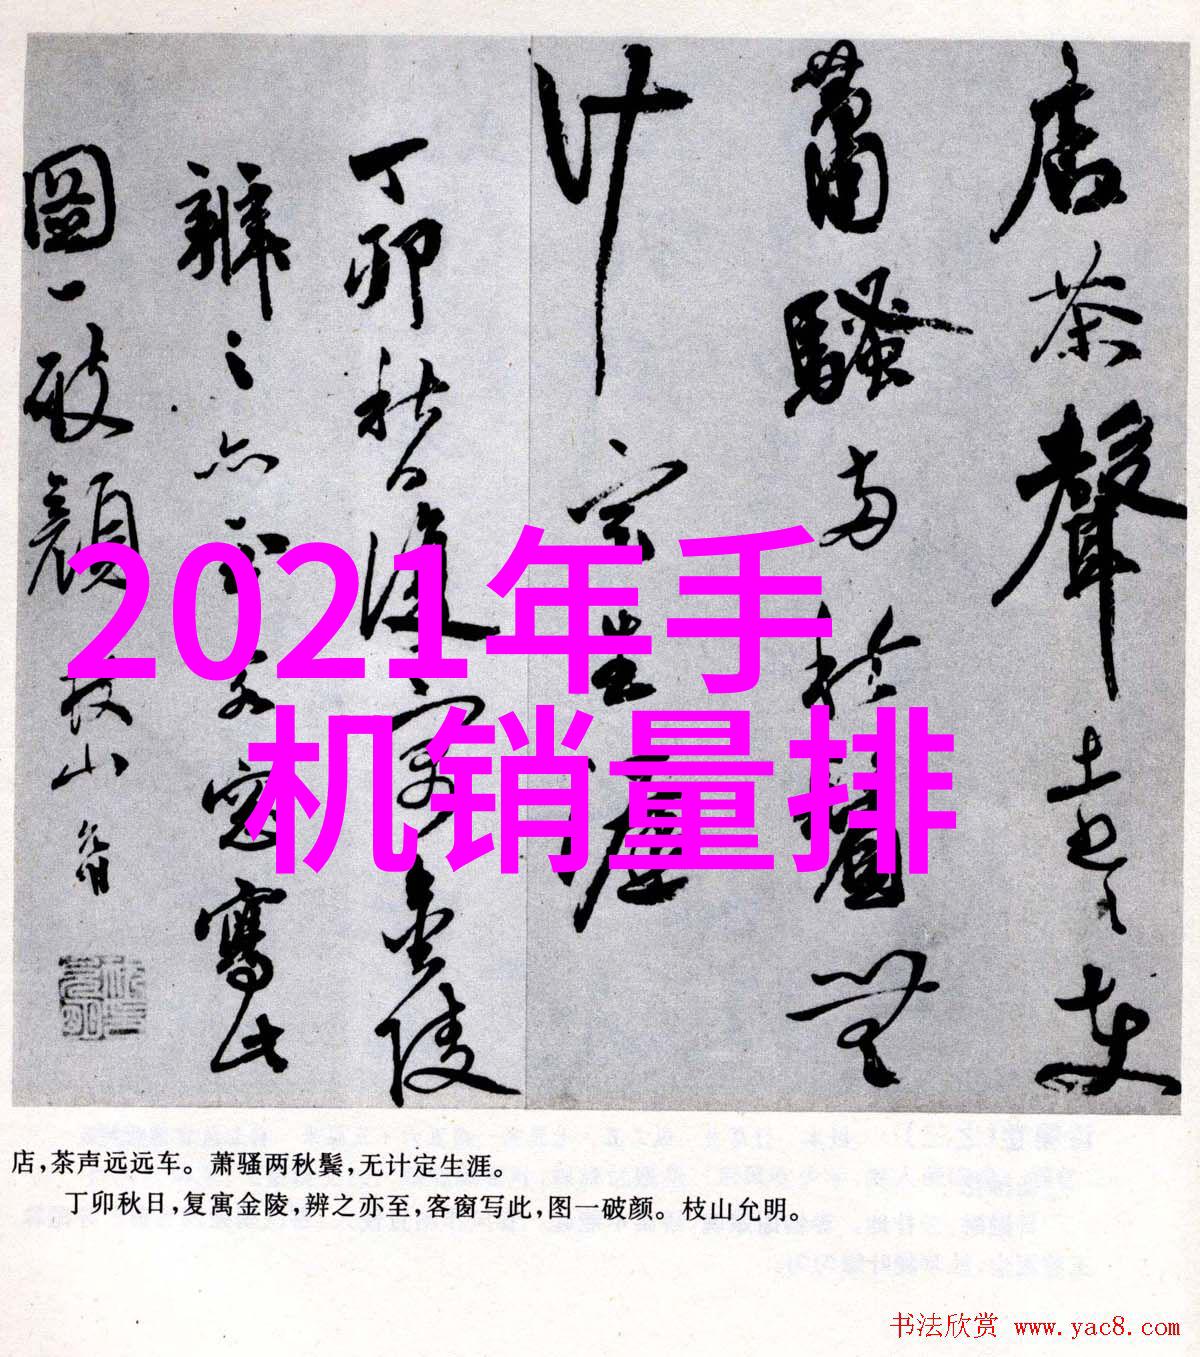 店茶聲遠遠車
蕭騷兩秋鬢無
計定生涯
丁卯秋日復寓金陵
辨之亦至客窗寫此
圖一破顏枝山允明
2021年手
机销量排
店，茶声远远车。萧骚两秋鬓，无计定生涯。
丁卯秋日，复寓金陵，辨之亦至，客窗写此，图一破颜。枝山允明。
书法欣赏 www.yac8.com